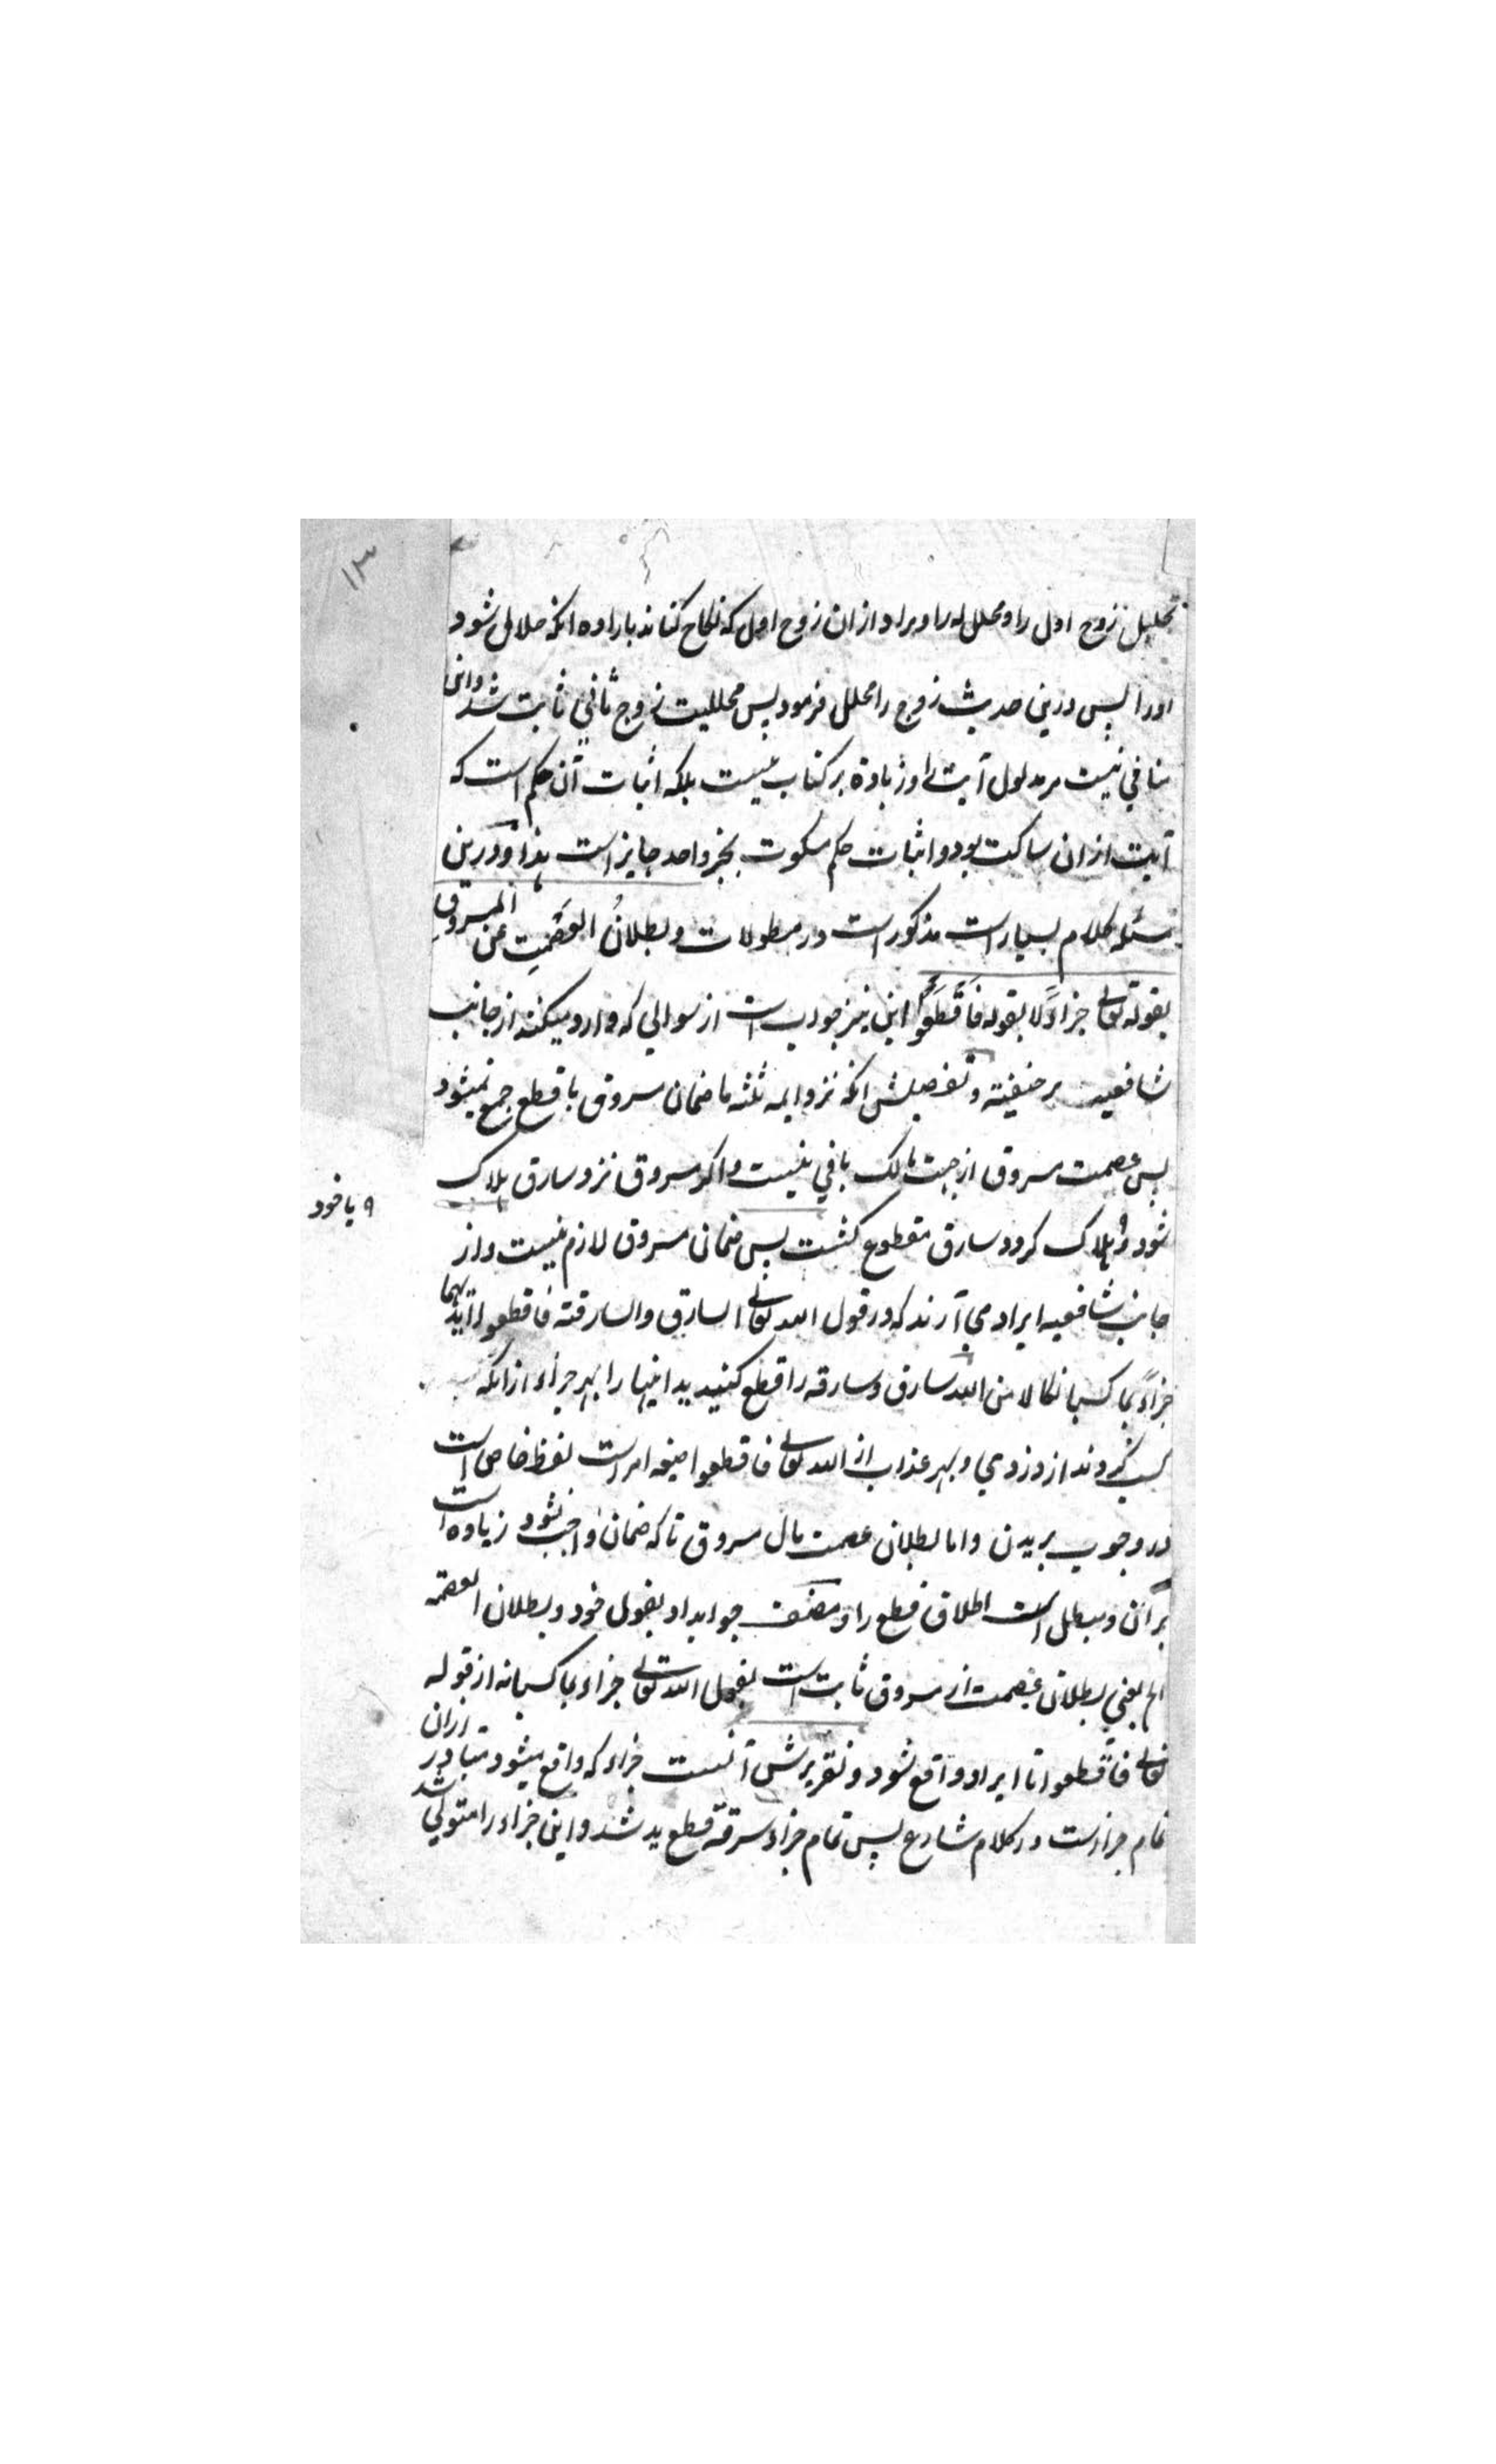 ۱۳
تحلیل زوج اول را و محلل له را و مراد ازان زوج اول که نکاح کناند باراده انکه حلال شود
اورا پس درین حدیث زوج را محلل فرمود پس محللیت زوج ثانی ثابت شد و این
منافی نیست مر مدلول آیت را و زیادة بر کتاب نیست بلکه اثبات آن حکم است که
آیت ازان ساکت بود و اثبات حکم سکوت بخبر واحد جایز است هذا و درین
مسئله کلام بسیار است مذکور است در مطولات وبطلانُ العصمتِ عن المسروقِ
بقوله تعالی جزاءً لا بقوله فَاقْطَعُوا این نیز جواب است از سوالی که وارد میکنند از جانب
شافعیه بر حنفیته و تفصیلش انکه نزد ایمه ثلثه ما ضمان مسروق با قطع جمع نمیشود
پس عصمت مسروق از جهت مالک باقی نیست و اکر مسروق نزد سارق هلاک
شود و هلاک کرد و سارق مقطوع کشت پس ضمان مسروق لازم نیست و از
۹ یا خود
جانب شافعیه ایراد می آرند که در قول الله تعالی السارق والسارقته فاقطعوا ایدیهما
جزاءً بما کسبا نکالا من الله سارق و سارقه را قطع کنید ید اینها را بهر جزاء از انکه
کسب کردند از دزدی و بهر عذاب از الله تعالی فاقطعوا صیغه امر است لفظ خاص است
در وجوب بریدن و اما بطلان عصمت مال مسروق تا که ضمان واجب نشود زیاده است
بر آن و مبطل است اطلاق قطع را و مصنف جوابداد بقول خود و بطلان العصمه
الخ یعنی بطلان عصمت از مسروق ثابت است بقول الله تعالی جزاء بما کسبا نه از قوله
تعالی فاقطعوا تا ایراد واقع شود و تقریرش آنست جزاء که واقع میشود متبادر ازان
تمام جزا است در کلام شارع پس تمام جزاء سرقه قطع ید شد و این جزاء را متولی شد